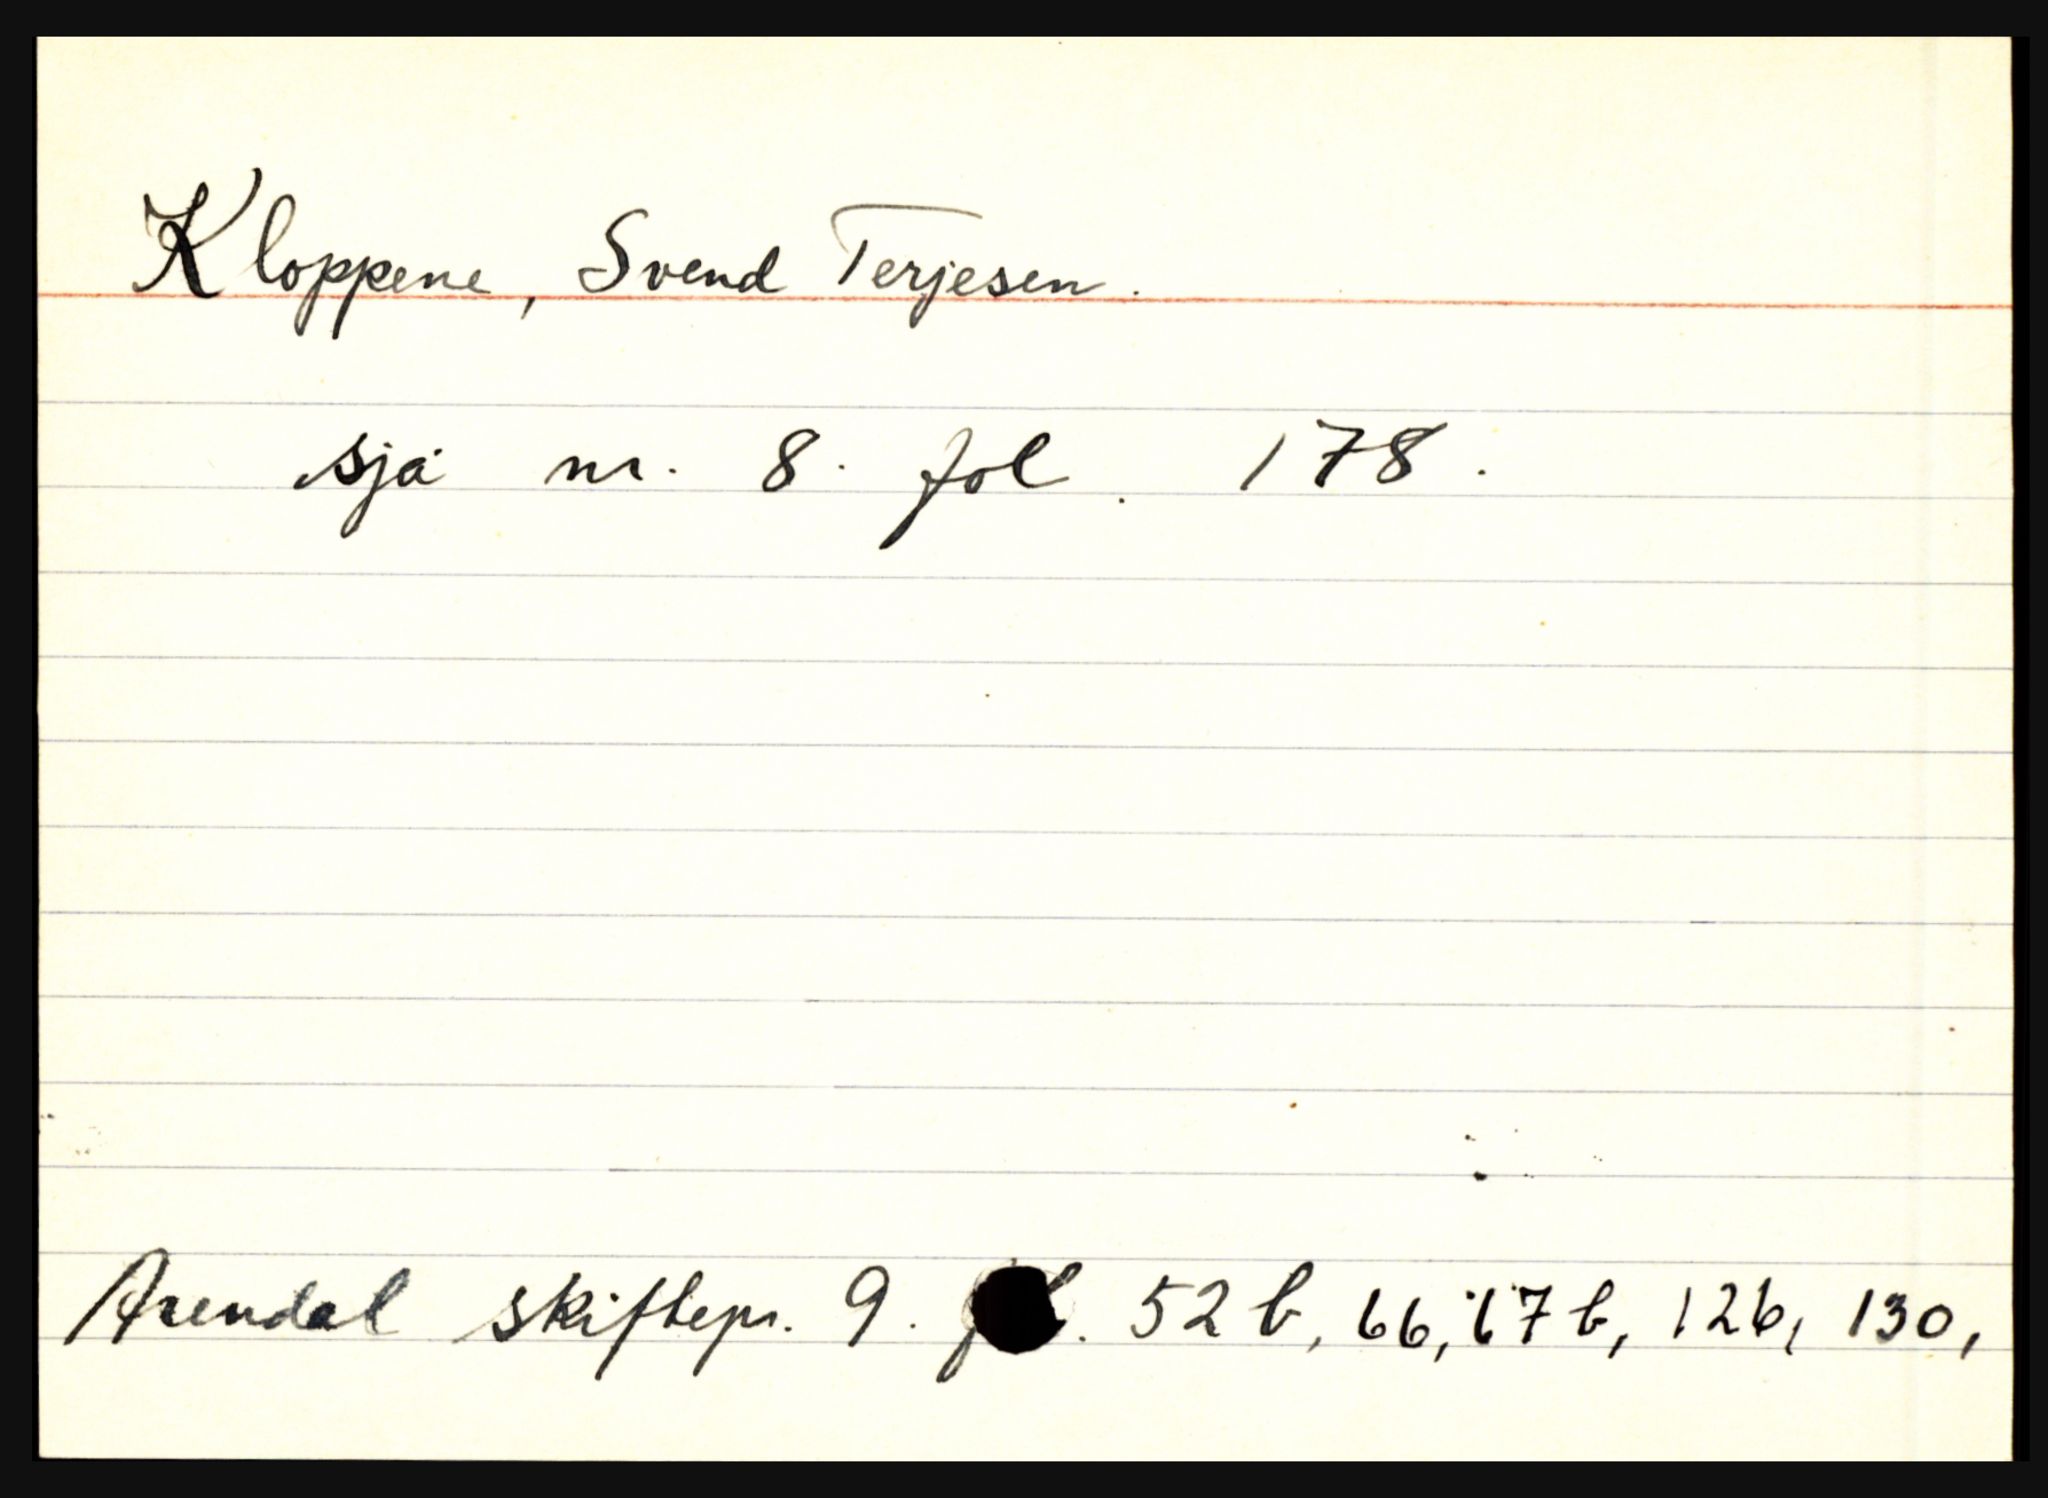 Kloppene, Svend Terjesen.
sjå nr. 8. fol. 178.
Arendal skiftepr. 9. fol. 52 b, 66, 67 b, 126, 130,